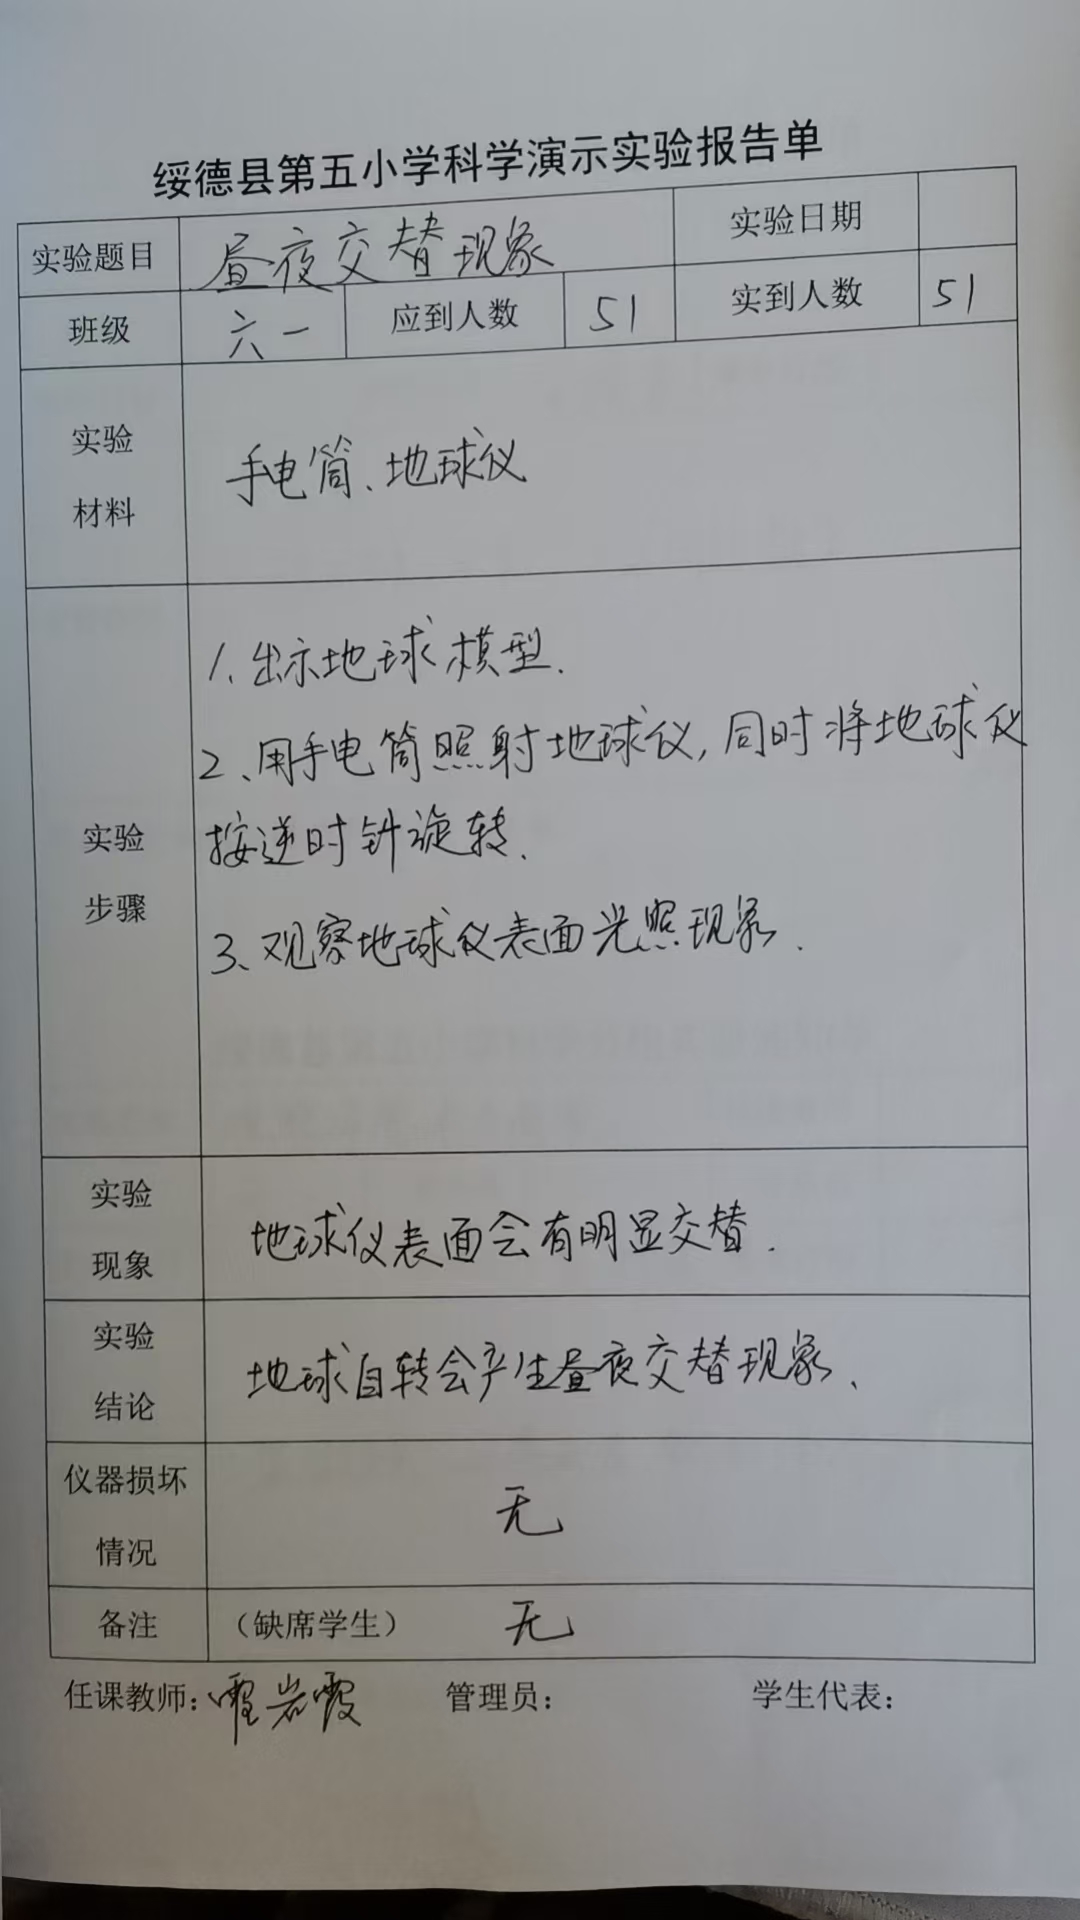 绥德县第五小学科学演示实验报告单
实验题目 昼夜交替现象 实验日期
班级 六一 应到人数 51 实到人数 51
实验
材料
手电筒、地球仪
实验
步骤
1、出示地球模型.
2、用手电筒照射地球仪,同时将地球仪
按逆时针旋转.
3、观察地球仪表面光照现象.
实验
现象
地球仪表面会有明显交替.
实验
结论
地球自转会产生昼夜交替现象、
仪器损坏
情况
无
备注 (缺席学生) 无
任课教师: 岩霞 管理员: 学生代表: